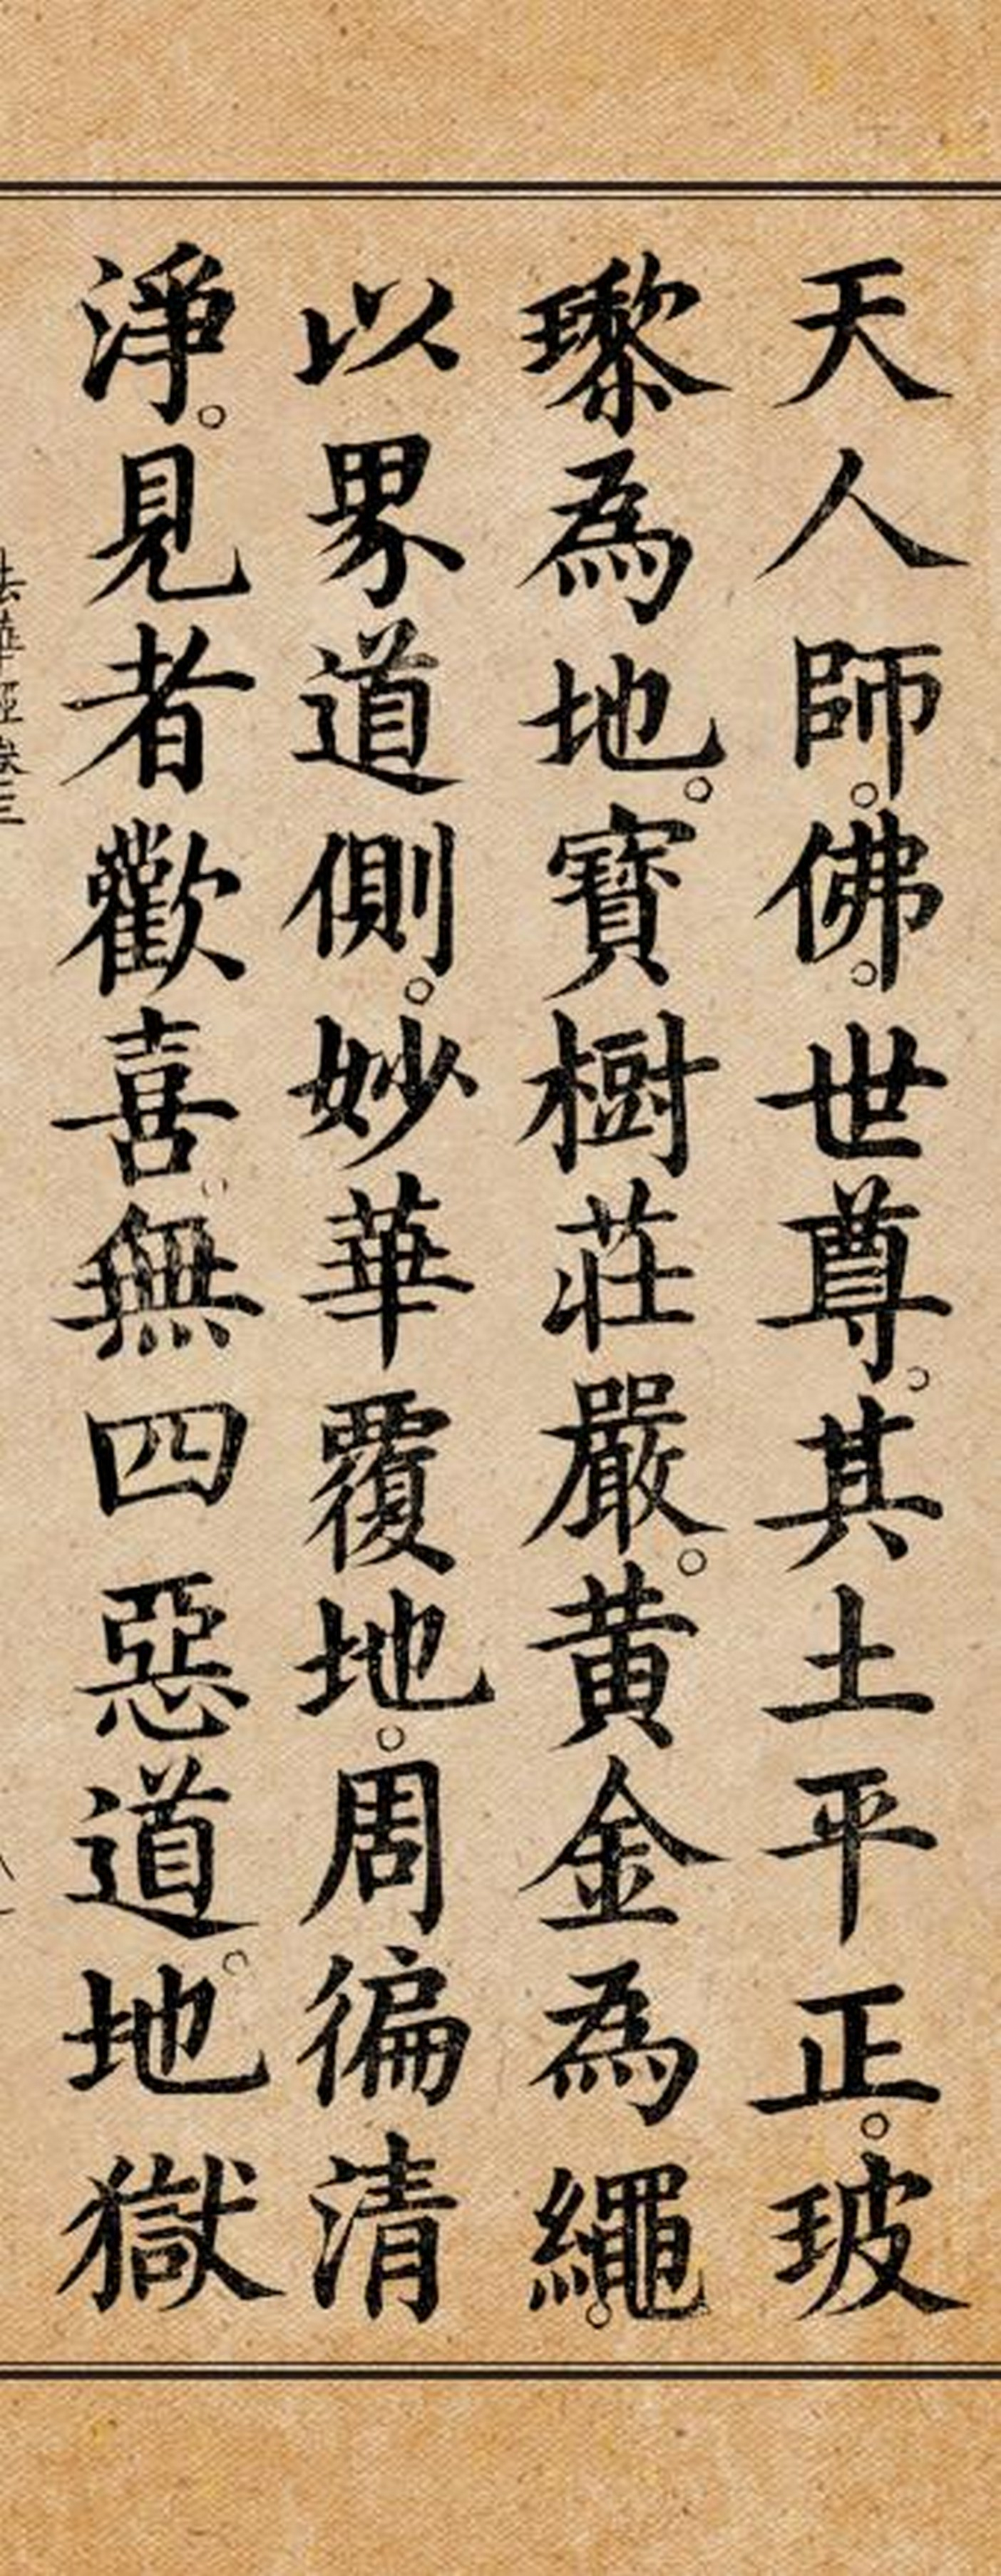 天人師。佛。世尊。其土平正。玻
瓈為地。寶樹莊嚴。黃金為繩。
以界道側。妙華覆地。周徧清
淨。見者歡喜。無四惡道。地獄
法華經卷三